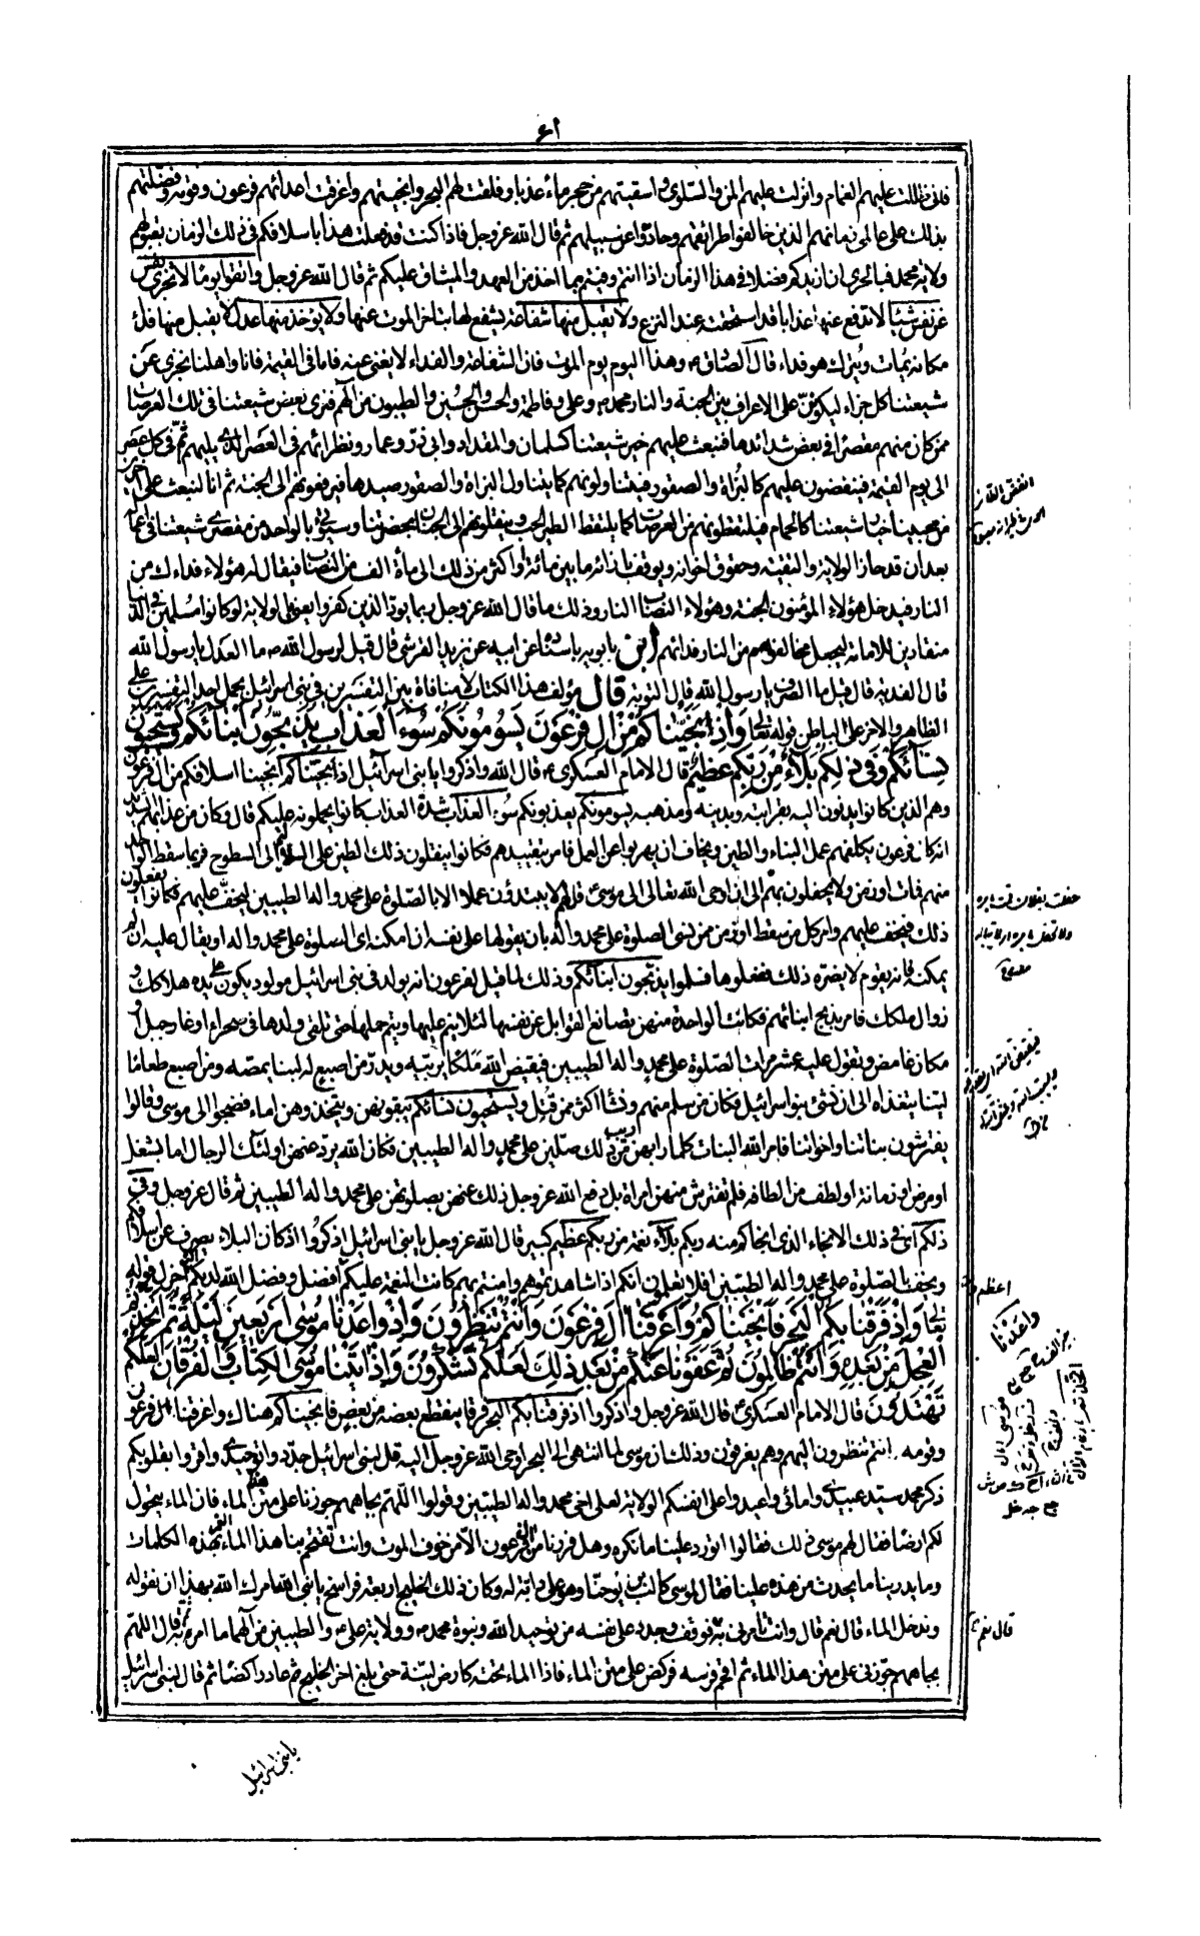 فانى ظللت عليهم الغمام وانزلت عليهم المن والسلوى واسقيتهم من حجر ماء عذبا وفلقت لهم البحر وانجيتهم واغرقت اعدائهم فرعون وقومه وفضلتهم
بذلك على عالمى زمانهم الذين خالفوا طرائقهم وحادوا عن سبيلهم ثم قال الله عز وجل فاذا كنت قد فعلت هذا باسلافكم فى ذلك الزمان بقبولهم
ولاية محمد فبالحرى ان ازيدكم فضلا فى هذا الزمان اذا انتم وفيتم بما اخذ من العهد والميثاق عليكم ثم قال الله عز وجل واتقوا يوما لا تجزى نفس
عن نفس شيئا لا تدفع عنها عذابا قد استحقته عند النزع ولا يقبل منها شفاعة يشفع لها بتاخر الموت عنها ولا يؤخذ منها عدل لا يقبل منها فداء
مكانه يمات ويترك هو فداء قال الصادق وهذا اليوم يوم الموت فان الشفاعة والفداء لا يغنى عنه فاما فى القيمة فانا واهلنا نجزى عن
شيعتنا كل جزاء ليكونن على الاعراف بين الجنة والنار محمد وعلى وفاطمة والحسن والحسين والطيبون من آلهم فنرى بعض شيعتنا فى تلك العرصات
ممن كان منهم مقصرا فى بعض شدائدها فنبعث عليهم خير شيعتنا كسلمان والمقداد وابى ذر وعمار ونظرائهم فى العصر الذى يليهم ثم فى كل عصر
الى يوم القيمة فينقضون عليهم كالبزاة والصقور فيتناولونهم كما يتناول البزاة والصقور صيدها فيزفونهم الى الجنة ثم انا لنبعث على اخرين
من محبينا خيار شيعتنا كالحمام فيلتقطونهم من العرصات كما يلتقط الطير الحب وينقلونهم الى الجنان بحضرتنا وسيؤتى بالواحد من مقصرى شيعتنا فى اعماله
بعد ان قد حاز الولاية والتقية وحقوق اخوانه ويوقف بازائه ما بين مائة واكثر من ذلك الى مأة الف من النصاب فيقال له هؤلاء فداءك من
النار فيدخل هؤلاء المؤمنون الجنة وهؤلاء النصاب النار وذلك ما قال الله عز وجل ربما يود الذين كفروا يعنى بالولاية لو كانوا مسلمين فى الدنيا
منقادين للامامة ليجعل مخالفوهم من النار فدائهم ابن بابويه باسناده عن ابيه عن يزيد القرشى قال قيل لرسول الله ما العدل يا رسول الله
قال الفدية قال قيل ما الصرف يا رسول الله قال التوبة قال مؤلف هذا الكتاب لا منافاة بين التفسيرين فى بنى اسرائيل يحمل احد التفسيرين على
الظاهر والاخر على الباطن قوله تعالى واذ نجيناكم من آل فرعون يسومونكم سوء العذاب يذبحون ابنائكم ويستحيون
نسائكم وفى ذلكم بلاء من ربكم عظيم قال الامام العسكرى قال الله واذكروا يا بنى اسرائيل اذ انجيناكم انجينا اسلافكم من آل فرعون
وهم الذين كانوا يدنون اليه بقرابته وبدينه ومذهبه يسومونكم يعذبونكم سوء العذاب شدة العذاب كانوا يحملونه عليكم قال وكان من عذابهم الشديد
انه كان فرعون يكلفهم عمل البناء والطين ويخاف ان يهربوا عن العمل فامر بتقييدهم فكانوا ينقلون ذلك الطين على السلاليم الى السطوح فربما سقط الواحد
منهم فمات او زمن ولا يحفلون بهم الى ان اوحى الله تعالى الى موسى قل لهم لا يبتدؤن عملا الا بالصلوة على محمد واله الطيبين ليخفف عليهم فكانوا يفعلون
ذلك فيخفف عليهم وامر كل من سقط او زمن ممن نسى الصلوة على محمد واله بان يقولها على نفسه ان امكنه اى الصلوة على محمد واله او يقال عليه ان لم
يمكنه فانه يقوم لا يضره ذلك ففعلوها فسلموا يذبحون ابنائكم وذلك لما قيل لفرعون انه يولد فى بنى اسرائيل مولود يكون على يده هلاكك و
زوال ملكك فامر بذبح ابنائهم فكانت الواحدة منهن تصانع القوابل عن نفسها لئلا ينم عليها ويتم حملها حتى تلقى ولدها فى صحراء او غار جبل او
مكان غامض وتقول عليه عشر مرات الصلوة على محمد واله الطيبين فيقيض الله ملكا يربيه ويدر من اصبع له لبنا يمصه ومن اصبع طعاما
لينا يتغذاه الى ان نشئ بنو اسرائيل فكان من سلم منهم ونشأ اكثر ممن قتل ويستحيون نسائكم يبقونهن ويتخذونهن اماء فضجوا الى موسى وقالوا
يفترشون بناتنا واخواتنا فامر الله البنات كلما رابهن ريب من ذلك صلين على محمد واله الطيبين فكان الله يرد عنهن اولئك الرجال اما بشغل
او مرض او زمانة او لطف من الطافه فلم تفترش منهن امراة بل دفع الله عز وجل ذلك عنهن بصلوتهن على محمد واله الطيبين ثم قال عز وجل وفى
ذلكم اى فى ذلك الانجاء الذى انجاكم منه ربكم بلاء نعمة من ربكم عظيم كبير قال الله عز وجل يا بنى اسرائيل اذكروا اذ كان البلاء يصرف عن اسلافكم
ويخفف بالصلوة على محمد واله الطيبين افلا تعلمون انكم اذا شاهدتموهم وامنتم بهم كانت النعمة عليكم افضل وفضل الله لديكم اجزل قوله
تعالى واذ فرقنا بكم البحر فانجيناكم واغرقنا آل فرعون وانتم تنظرون واذ واعدنا موسى اربعين ليلة ثم اتخذتم
العجل من بعده وانتم ظالمون ثم عفونا عنكم من بعد ذلك لعلكم تشكرون واذ اتينا موسى الكتاب والفرقان لعلكم
تهتدون قال الامام العسكرى قال الله عز وجل واذكروا اذ فرقنا بكم البحر فرقا ينقطع بعضه من بعض فانجيناكم هناك واغرقنا آل فرعون
وقومه وانتم تنظرون اليهم وهم يغرقون وذلك ان موسى لما انتهى الى البحر اوحى الله عز وجل اليه قل لبنى اسرائيل جددوا توحيدى واقروا بقلوبكم
ذكر محمد سيد عبيدى وامائى واعيدوا على انفسكم الولاية لعلى اخى محمد واله الطيبين وقولوا اللهم بجاههم جوزنا على متن هذا الماء فان الماء يتحول
لكم ارضا فقال لهم موسى ذلك فقالوا اتورد علينا ما نكره وهل فررنا من آل فرعون الا من خوف الموت وانت تقتحم بنا هذا الماء الغمر بهذه الكلمات
وما يدرينا ما يحدث من هذه علينا فقال لموسى كالب بن يوحنا وهو على دابة له وكان ذلك الخليج اربعة فراسخ يا نبى الله امرك الله بهذا ان نقوله
وندخل الماء قال نعم قال وانت تامرنى به فوقف وجدد على نفسه من توحيد الله ونبوة محمد وولاية على والطيبين من آلهما ما امر به ثم قال اللهم
بجاههم جوزنى على متن هذا الماء ثم اقحم فرسه فركض على متن الماء فاذا الماء تحته كارض لينة حتى بلغ اخر الخليج ثم عاد راكضا ثم قال لبنى اسرائيل
اعظم
واعدنا
قال نعم
يا بنى اسرائيل